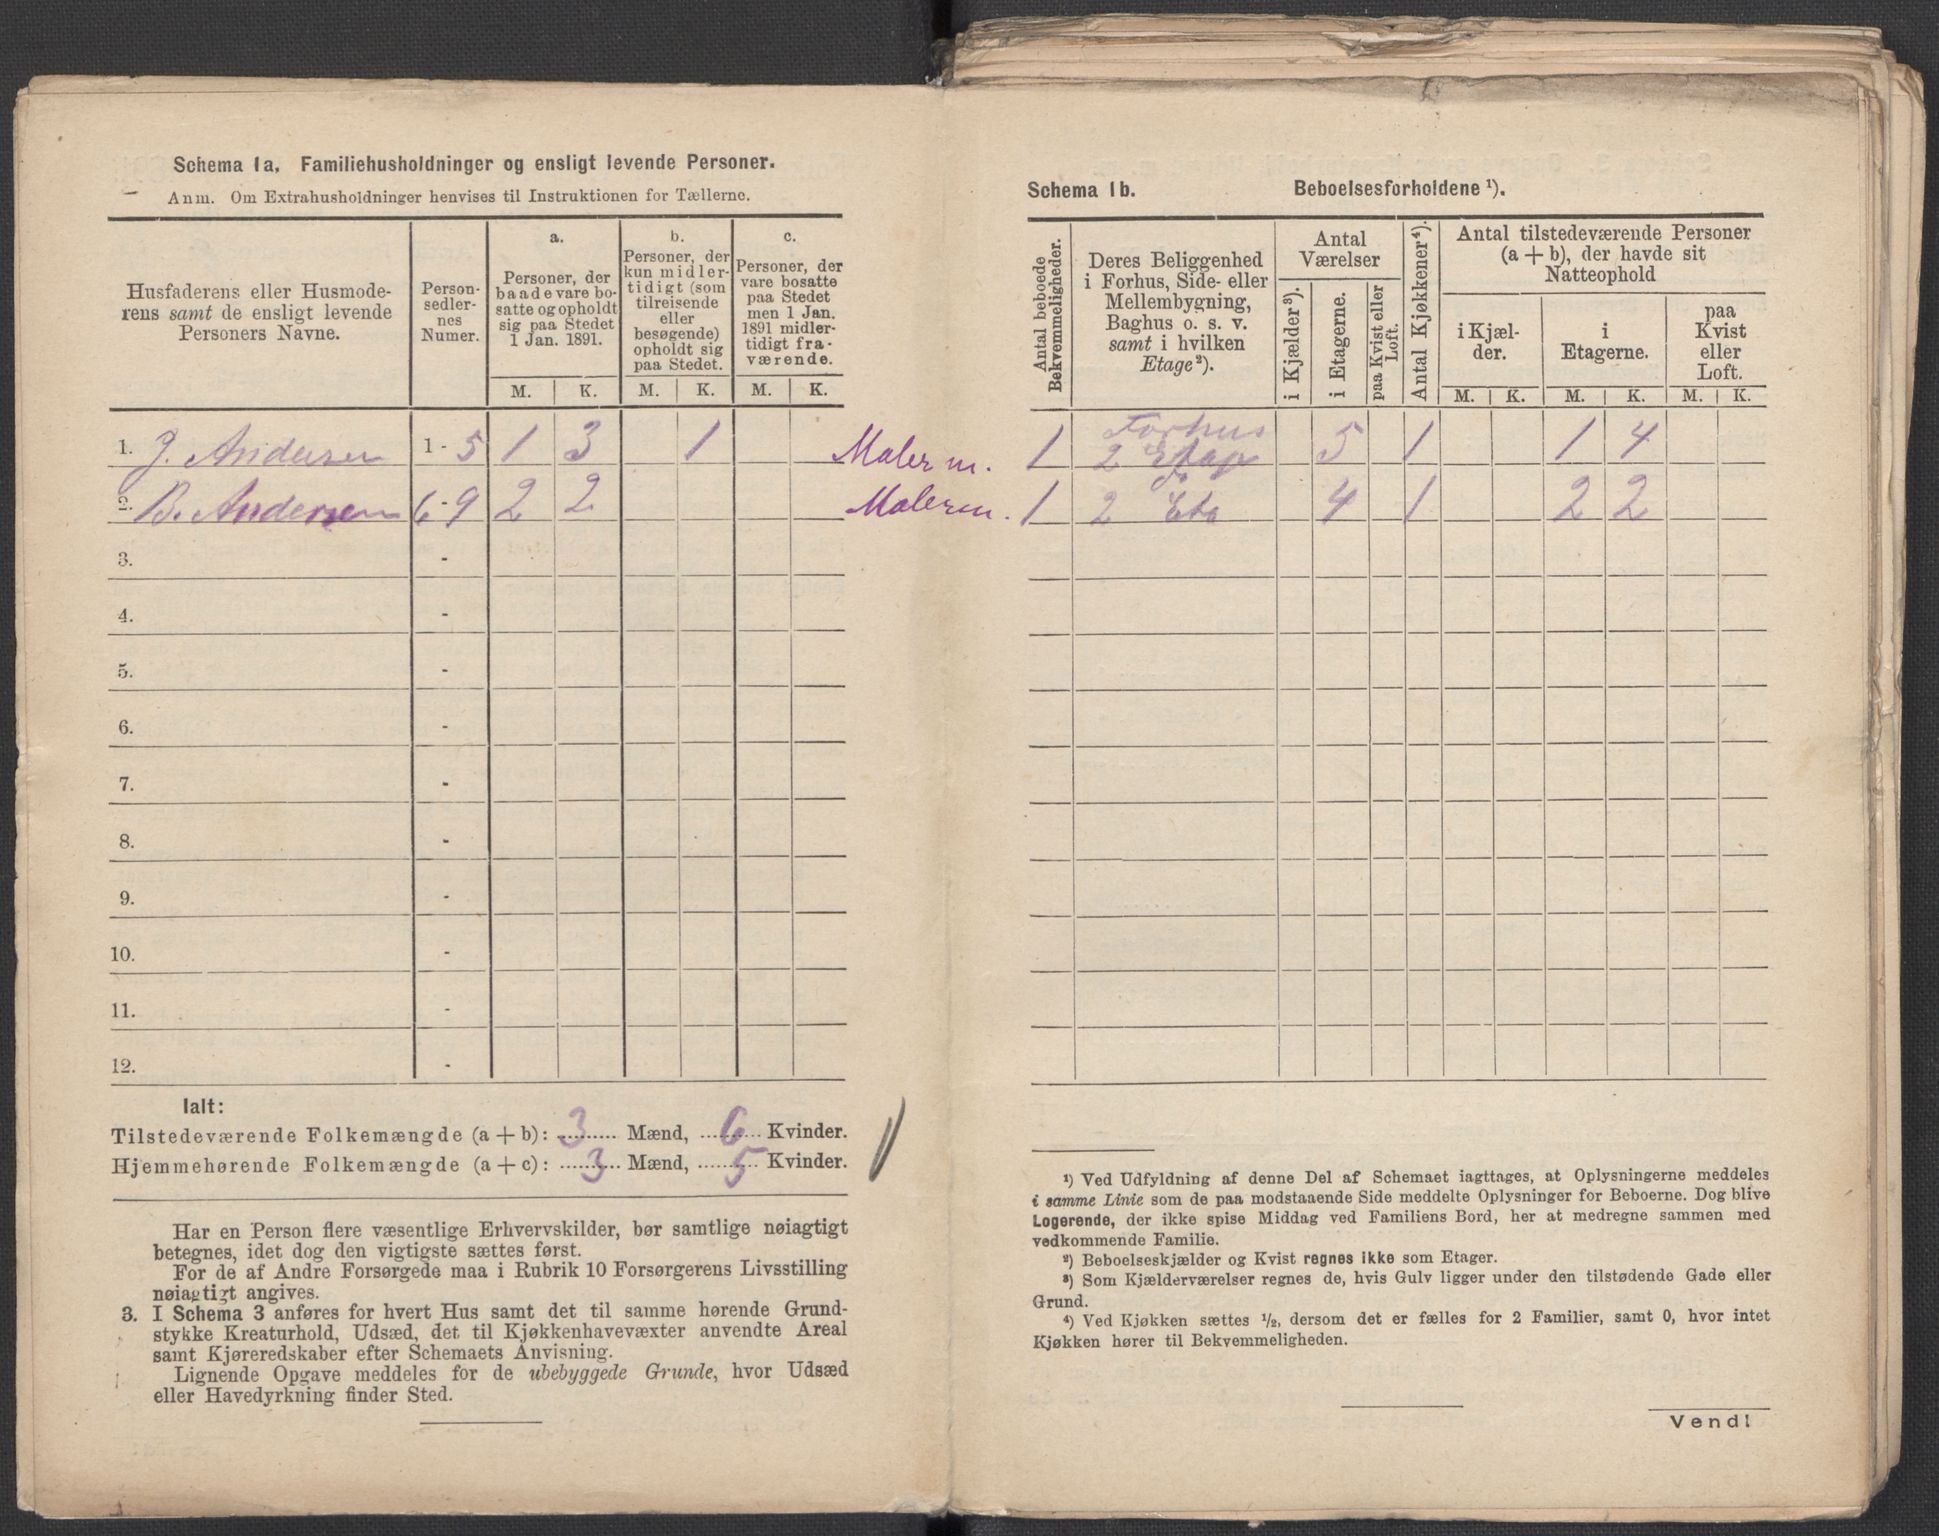 Schema 1a. Familiehusholdninger og ensligt levende Personer.
Anm. Om Extrahusholdninger henvises til Instruktionen for Tællerne.
Husfaderens eller Husmode-
rens samt de ensligt levende
Personers Navne.
Person-
sedler-
nes
Numer.
a.
Personer, der
baade vare bo-
satte og opholdt
sig paa Stedet
1 Jan. 1891.
b.
Personer, der
kun midler-
tidigt (som
tilreisende
eller
besøgende)
opholdt sig
paa Stedet.
c.
Personer, der
vare bosatte
paa Stedet
men 1 Jan.
1891 midler-
tidigt fra-
værende.
M. K. M. K. M. K.
1. J. Andersen 1-5 1 3 1
2. B. Andersen 6-9 2 2
3. -
4. -
5. -
6. -
7. -
8. -
9. -
10. -
11. -
12. -
Ialt:
Tilstedeværende Folkemængde (a + b): 3 Mænd, 6 Kvinder.
Hjemmehørende Folkemængde (a + c): 3 Mænd, 5 Kvinder.
Har en Person flere væsentlige Erhvervskilder, bør samtlige nøiagtigt
betegnes, idet dog den vigtigste sættes først.
For de af Andre Forsørgede maa i Rubrik 10 Forsørgerens Livsstilling
nøiagtigt angives.
3. I Schema 3 anføres for hvert Hus samt det til samme hørende Grund-
stykke Kreaturhold, Udsæd, det til Kjøkkenhavevæxter anvendte Areal
samt Kjøreredskaber efter Schemaets Anvisning.
Lignende Opgave meddeles for de ubebyggede Grunde, hvor Udsæd
eller Havedyrkning finder Sted.
Schema 1b. Beboelsesforholdene ¹).
Antal beboede
Bekvemmeligheder.
Deres Beliggenhed
i Forhus, Side- eller
Mellembygning,
Baghus o. s. v.
samt i hvilken
Etage²).
Antal
Værelser
i Kjælder³).
i Etagerne.
paa Kvist eller
Loft.
Antal Kjøkkener⁴).
Antal tilstedeværende Personer
(a + b), der havde sit
Natteophold
i Kjæl-
der.
i
Etagerne.
paa
Kvist
eller
Loft.
M. K. M. K. M. K.
Forhus
Maler m. 1 2 Etage 5 1 1 4
Malerm. 1 2 Eta 4 1 2 2
¹) Ved Udfyldning af denne Del af Schemaet iagttages, at Oplysningerne meddeles
i samme Linie som de paa modstaaende Side meddelte Oplysninger for Beboerne. Dog blive
Logerende, der ikke spise Middag ved Familiens Bord, her at medregne sammen med
vedkommende Familie.
²) Beboelseskjælder og Kvist regnes ikke som Etager.
³) Som Kjælderværelser regnes de, hvis Gulv ligger under den tilstødende Gade eller
Grund.
⁴) Ved Kjøkken sættes ½, dersom det er fælles for 2 Familier, samt 0, hvor intet
Kjøkken hører til Bekvemmeligheden.
Vend!